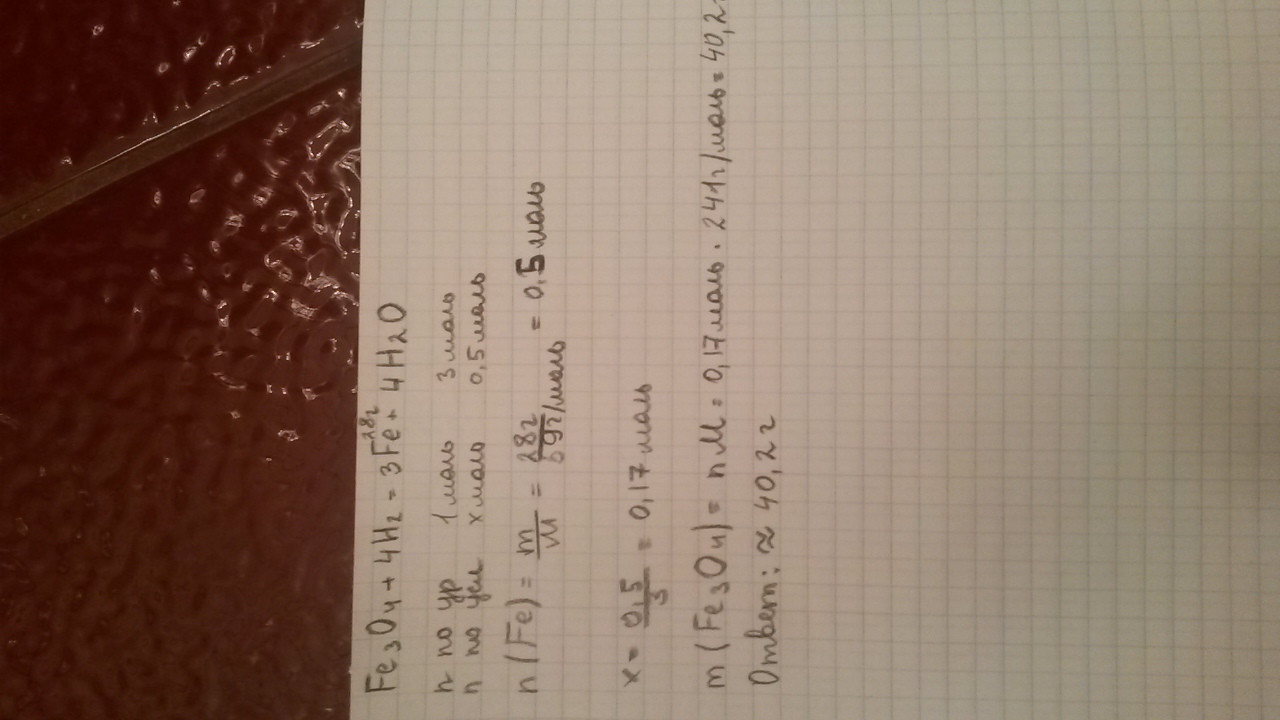 Fe₃O₄ + 4H₂ = 3Fe + 4H₂O
28г
n по ур 1 моль 3 моль
n по усл x моль 0,5 моль
n (Fe) = m/M = 28г/59г/моль = 0,5 моль
x = 0,5/3 = 0,17 моль
m (Fe₃O₄) = n M = 0,17 моль · 241г/моль = 40,2
Ответ: ≈ 40,2 г